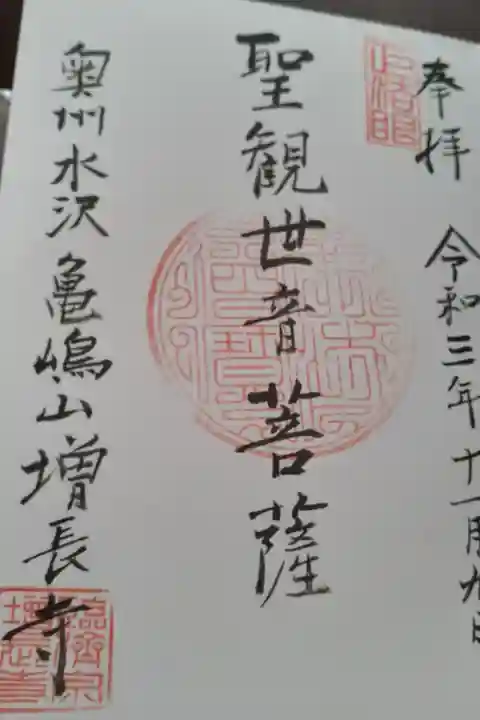 奉拝 令和三年十一月九日
聖観世音菩薩
奥州水沢亀嶋山増長寺
臨済宗
増長寺